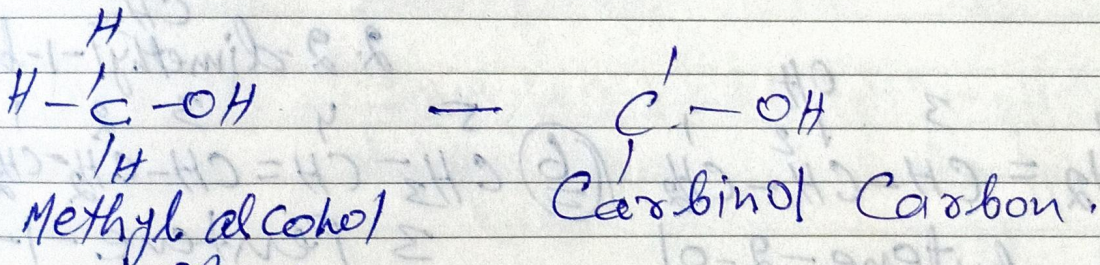 H
H-C-OH — C-OH
H
Methyl alcohol Carbinol Carbon.